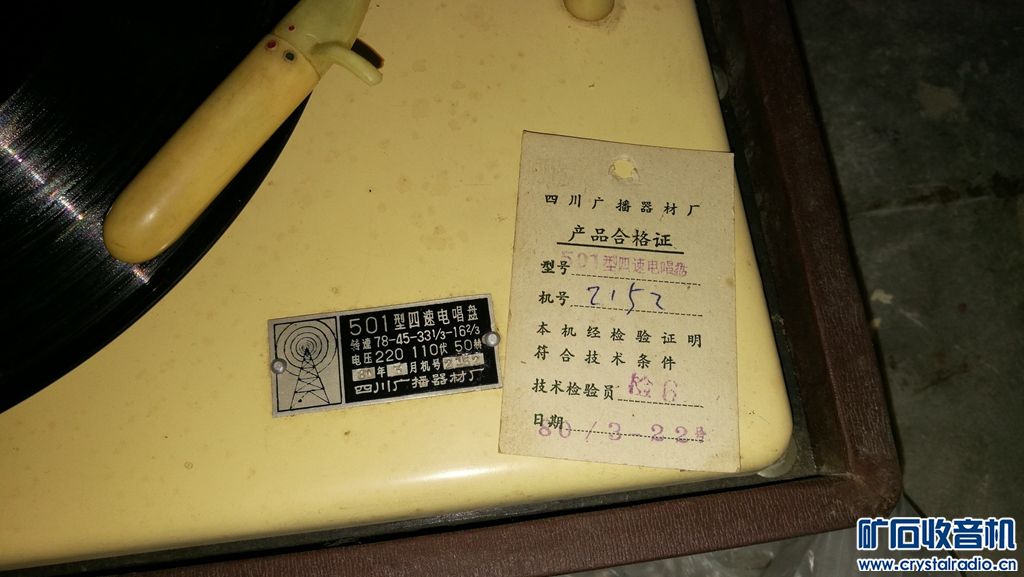 501型四速电唱盘
转速 78-45-33⅓-16⅔
电压 220 110伏 50赫
80年3月机号2152
四川广播器材厂
四川广播器材厂
产品合格证
型号 501型四速电唱盘
机号 2152
本机经检验证明
符合技术条件
技术检验员 检6
日期 80/3-22
矿石收音机
www.crystalradio.cn